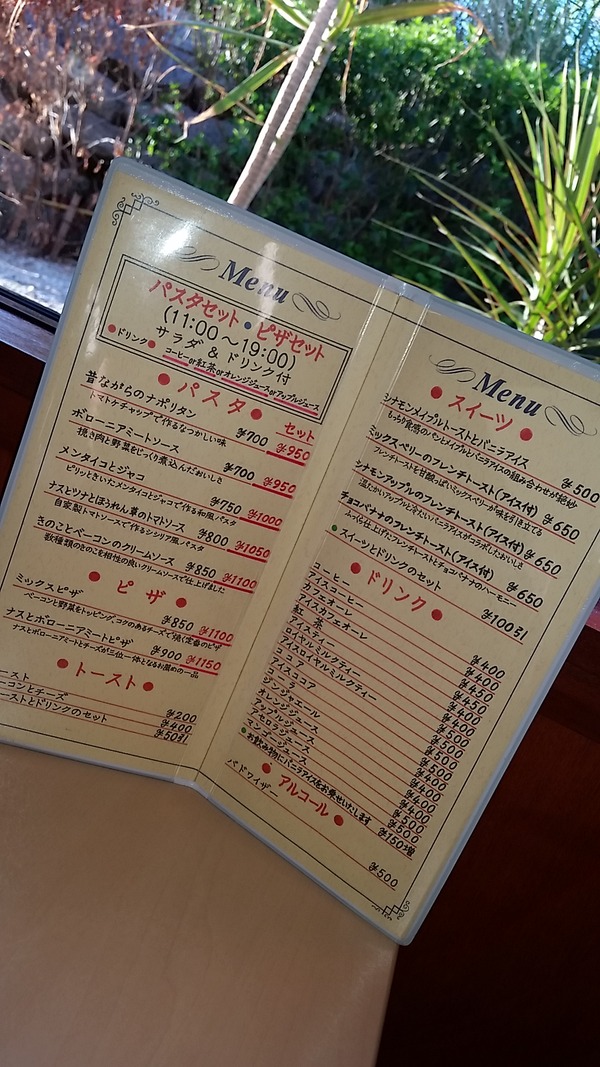 Menu
パスタセット・ピザセット
(11:00～19:00)
サラダ & ドリンク付
●ドリンク● コーヒーor紅茶orオレンジジュースorアップルジュース
●パスタ●
セット
昔ながらのナポリタン ¥700 ¥950
トマトケチャップで作るなつかしい味
ボローニアミートソース ¥700 ¥950
挽き肉と野菜をじっくり煮込んだおいしさ
メンタイコとジャコ ¥750 ¥1000
ピリッときいたメンタイコとジャコで作る和風パスタ
ナスとツナとほうれん草のトマトソース ¥800 ¥1050
自家製トマトソースで作るシシリア風パスタ
きのことベーコンのクリームソース ¥850 ¥1100
数種類のきのこを相性の良いクリームソースで仕上げました
●ピザ●
ミックスピザ ¥850 ¥1100
ベーコンと野菜をトッピング、コクのあるチーズで焼く定番のピザ
ナスとボローニアミートピザ ¥900 ¥1150
ナスとボローニアミートとチーズが三位一体となるお薦めの一品
●トースト●
ースト ¥200
ーコンとチーズ ¥400
ーストとドリンクのセット ¥50引
Menu
●スイーツ●
シナモンメイプルトーストとバニラアイス ¥500
もっちり食感のパンとメイプルとバニラアイスの組み合わせが絶妙
ミックスベリーのフレンチトースト(アイス付) ¥650
フレンチトーストを甘酸っぱいミックスベリーが味を引き立てる
シナモンアップルのフレンチトースト(アイス付) ¥650
温かいアップルと冷たいバニラアイスがコラボしたおいしさ
チョコバナナのフレンチトースト(アイス付) ¥650
ふっくら仕上げたフレンチトーストとチョコバナナのハーモニー
●スイーツとドリンクのセット ¥100引
●ドリンク●
コーヒー ¥400
アイスコーヒー ¥400
カフェオーレ ¥450
アイスカフェオーレ ¥450
紅 茶 ¥400
アイスティー ¥400
ロイヤルミルクティー ¥500
アイスロイヤルミルクティー ¥500
ココア ¥500
アイスココア ¥500
ジンジャエール ¥400
オレンジジュース ¥400
アップルジュース ¥400
アセロラジュース ¥500
マンゴージュース ¥500
●お飲み物にバニラアイスをお乗せいたします ¥150増
●アルコール●
バドワイザー ¥500